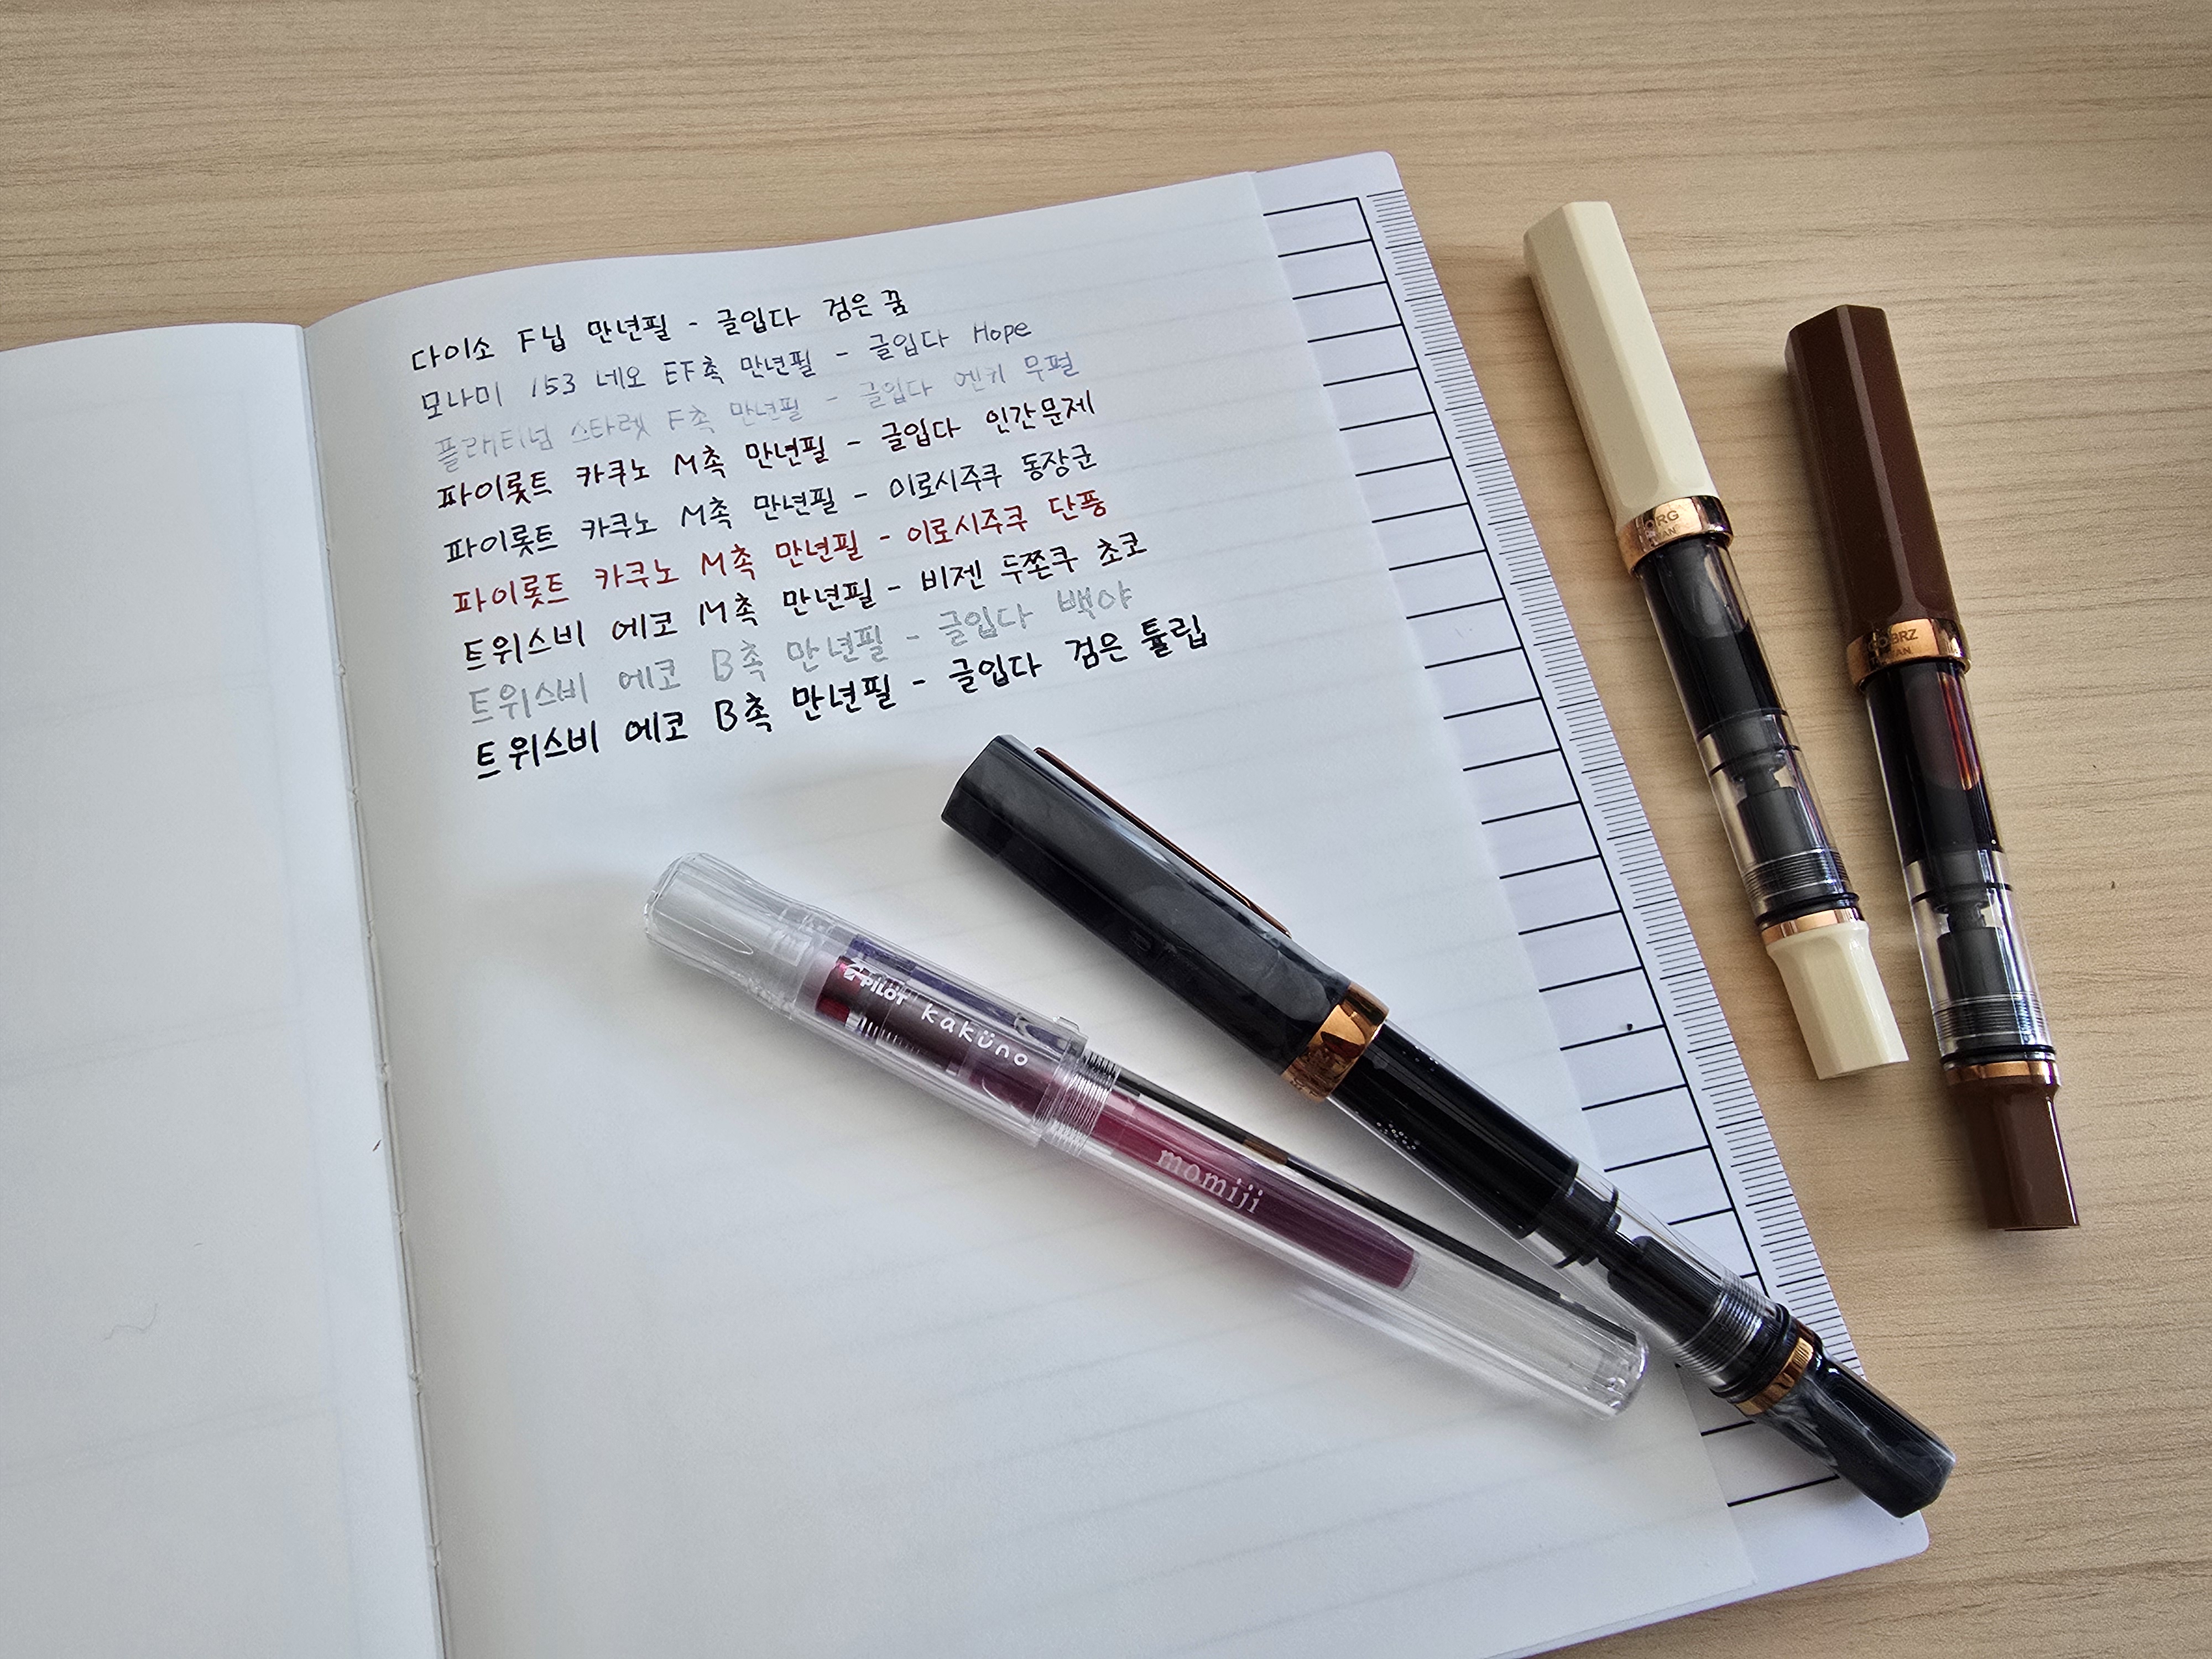 다이소 F닙 만년필 - 글입다 검은 꿈
모나미 153 네오 EF촉 만년필 - 글입다 Hope
플래티넘 스타렛 F촉 만년필 - 글입다 엔키 무펄
파이롯트 카쿠노 M촉 만년필 - 글입다 인간문제
파이롯트 카쿠노 M촉 만년필 - 이로시주쿠 동장군
파이롯트 카쿠노 M촉 만년필 - 이로시주쿠 단풍
트위스비 에코 M촉 만년필 - 비젠 두쫀쿠 초코
트위스비 에코 B촉 만년필 - 글입다 백야
트위스비 에코 B촉 만년필 - 글입다 검은 튤립
PILOT kaküno
momiji